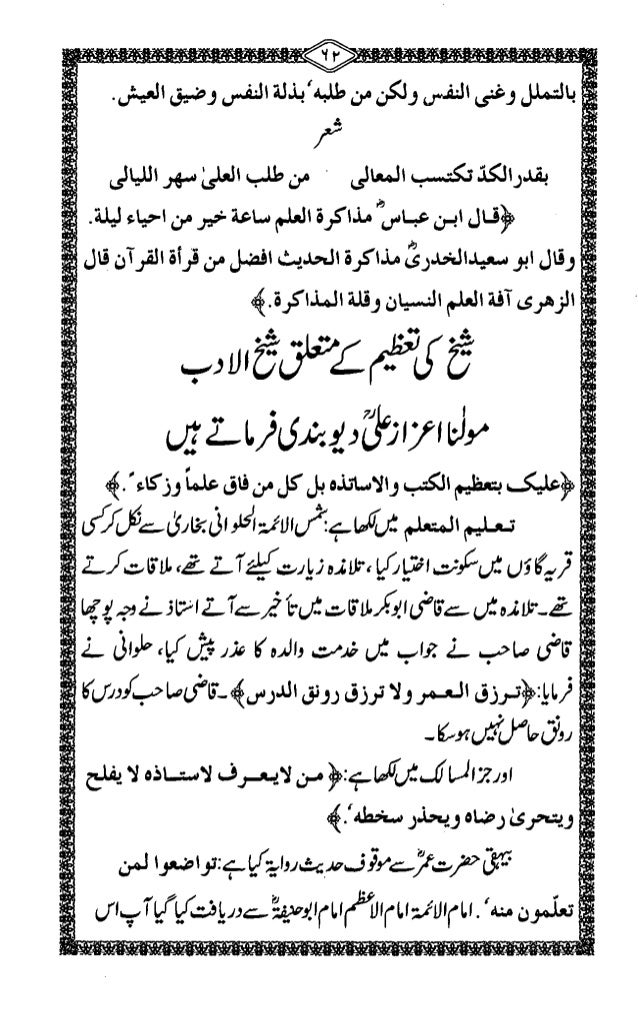 ۶۲
بالتملل وغنى النفس ولكن من طلبه' بذلة النفس وضيق العيش.
شعر
بقدر الكدّ تكتسب المعالى من طلب العلىٰ سهر الليالى
﴿قال ابن عباسؓ مذاكرة العلم ساعة خير من احياء ليلة.
وقال ابو سعيدالخدرىؓ مذاكرة الحديث افضل من قرأة القرآن قال
الزهرى آفة العلم النسيان وقلة المذاكرة.﴾
شیخ کی تعظیم کے متعلق شیخ الادب
مولٰنا اعزاز علیؒ دیوبندی فرماتے ہیں
﴿عليك بتعظيم الكتب والاساتذه بل كل من فاق علماً وزكاء ً.﴾
تعليم المتعلم میں لکھا ہے: شمس الائمۃ الحلوانی بخاریٰ سے نکل کر کسی
قریہ گاؤں میں سکونت اختیار کیا، تلامذہ زیارت کیلئے آتے تھے، ملاقات کرتے
تھے۔ تلامذہ میں سے قاضی ابوبکر ملاقات میں تأخیر سے آتے استاذ نے وجہ پوچھا
قاضی صاحب نے جواب میں خدمت والدہ کا عذر پیش کیا، حلوانی نے
فرمایا: ﴿ترزق العمر ولا ترزق رونق الدرس﴾۔ قاضی صاحب کو درس کا
رونق حاصل نہیں ہوسکا۔
اوجز المسالک میں لکھا ہے: ﴿من لايعرف لاستاذه لا يفلح
ويتحرىٰ رضاه ويحذر سخطه'.﴾
بیہقی حضرت عمرؓ سے موقوف حدیث روایۃ کیا ہے: تواضعوا لمن
تعلّمون منه'. امام الائمۃ امام الاعظم امام ابوحنیفہؒ سے دریافت کیا گیا آپ اس